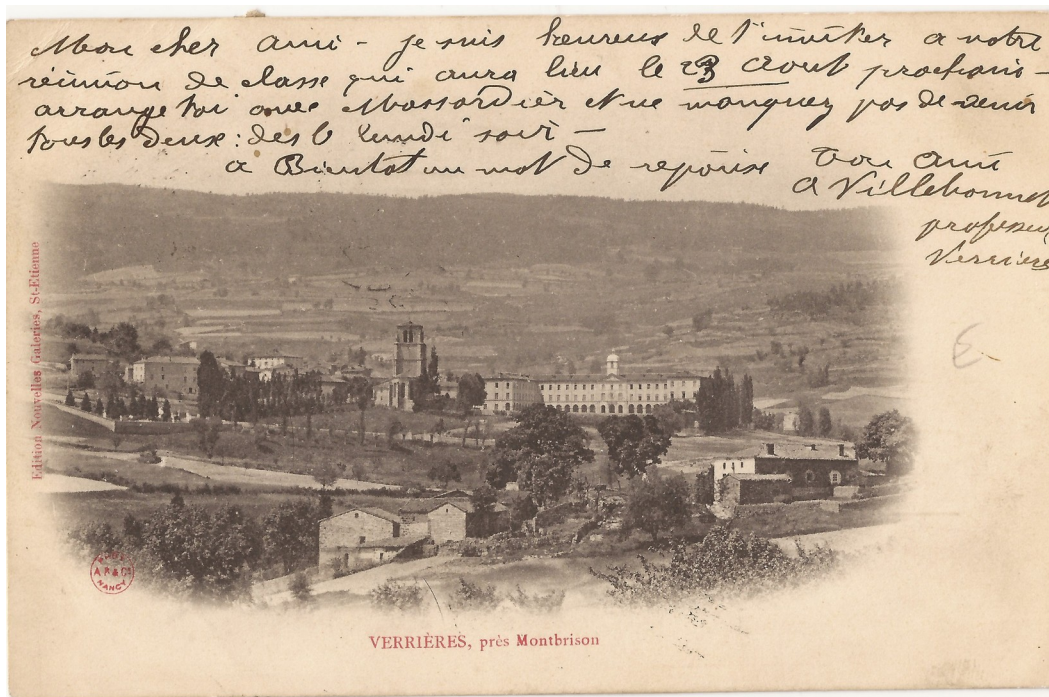 Mon cher ami - je suis heureux de t'inviter a notre
réunion de classe qui aura lieu le 23 Aout prochain -
arrange toi avec Massardier et ne manquez pas de venir
tous les deux : dès le lundi soir -
a Bientot un mot de reponse Ton ami
a Villebonnet
professeur
Verrières
Edition Nouvelles Galeries, St-Etienne
A.B & Cie
NANCY
VERRIÈRES, près Montbrison